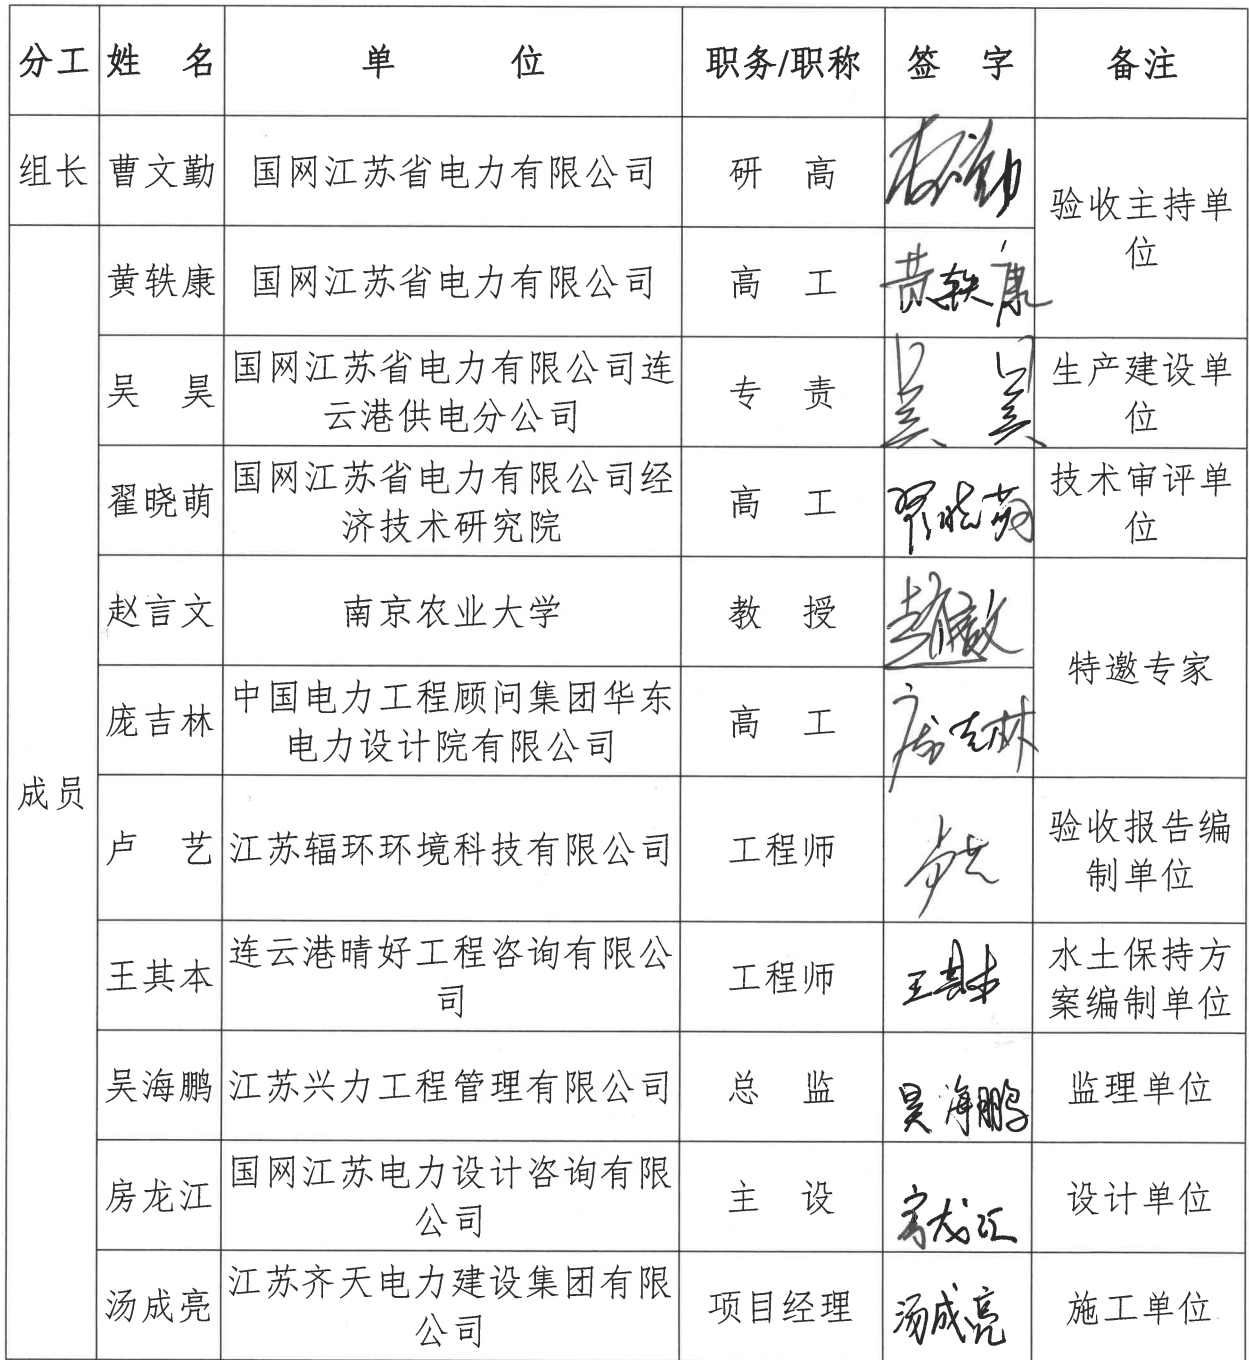 分工 姓 名 单 位 职务/职称 签 字 备注
组长 曹文勤 国网江苏省电力有限公司 研 高 验收主持单
位
成员
黄轶康 国网江苏省电力有限公司 高 工 黄轶康
吴 昊 国网江苏省电力有限公司连
云港供电分公司 专 责 吴 昊 生产建设单
位
翟晓萌 国网江苏省电力有限公司经
济技术研究院 高 工 翟晓萌 技术审评单
位
赵言文 南京农业大学 教 授 特邀专家
庞吉林 中国电力工程顾问集团华东
电力设计院有限公司 高 工 庞吉林
卢 艺 江苏辐环环境科技有限公司 工程师 验收报告编
制单位
王其本 连云港晴好工程咨询有限公
司 工程师 王其本 水土保持方
案编制单位
吴海鹏 江苏兴力工程管理有限公司 总 监 吴海鹏 监理单位
房龙江 国网江苏电力设计咨询有限
公司 主 设 房龙江 设计单位
汤成亮 江苏齐天电力建设集团有限
公司 项目经理 汤成亮 施工单位